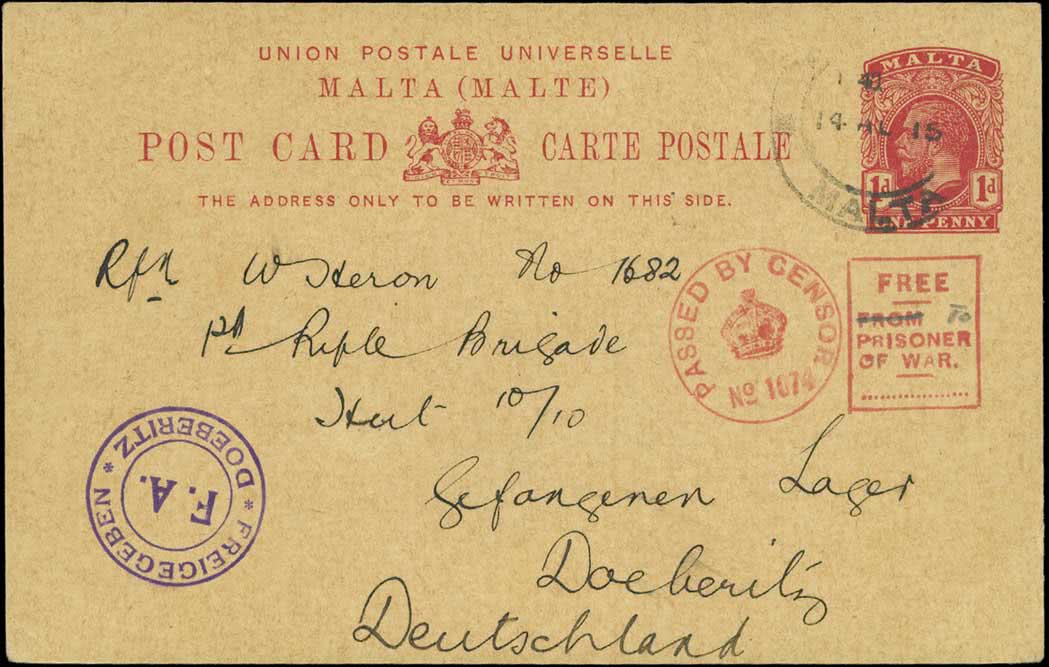 UNION POSTALE UNIVERSELLE
MALTA (MALTE)
POST CARD CARTE POSTALE
THE ADDRESS ONLY TO BE WRITTEN ON THIS SIDE.
MALTA
1d 1d
ONE PENNY
15
MALTA
Rfn W Heron No 1682
1st Rifle Brigade
Hut 10/10
Gefangenen Lager
Doeberitz
Deutschland
PASSED BY CENSOR
No 1074
FREE
FROM To
PRISONER
OF WAR.
* FREIGEGEBEN * DOEBERITZ
F.A.